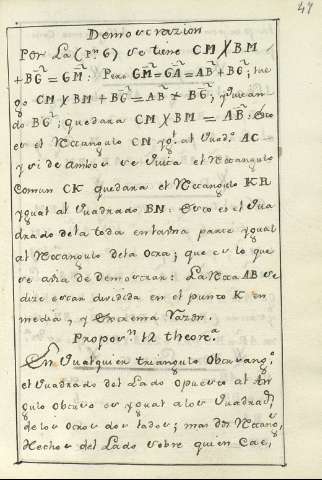 47
Demostrazion
Por La (Pn 6) se tiene CM X BM
+ BG² = GM²: Pero GM² = GA² = AB² + BG²; lue
go CM X BM + BG² = AB² + BG²; y quitan
do BG²; quedara CM X BM = AB²: Esto
es el Rectangulo CN ygl. al Quado. AC
y si de ambos se quita el Rectangulo
Comun CK quedara el Rectangulo KR
ygual al Quadrado BN: Esto es el Qua
drado de la toda en la una parte ygual
al Rectangulo de la otra; que es lo que
se avia de demostrar: La Recta AB se
dize estar dividida en el punto K en
media, y Extrema Razon.
Proposn. 12 theorea.
En Qualquier triangulo Obtusango.
el Quadrado del Lado Opuesto al An
gulo Obtuso es ygual a los Quadrads.
de los Otros dos lados; mas dos Rectangs.
Hechos del Lado sobre quien Cae,